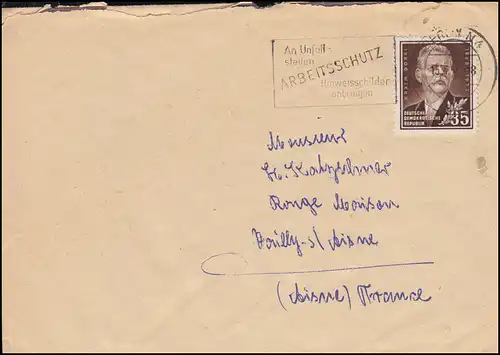 An Unfall-
stellen
ARBEITSSCHUTZ
Hinweisschilder
anbringen
BERLIN N4
DEUTSCHE
DEMOKRATISCHE
REPUBLIK
35
Monsieur
Rouge Maison
Vailly-s/Aisne
(Aisne) France